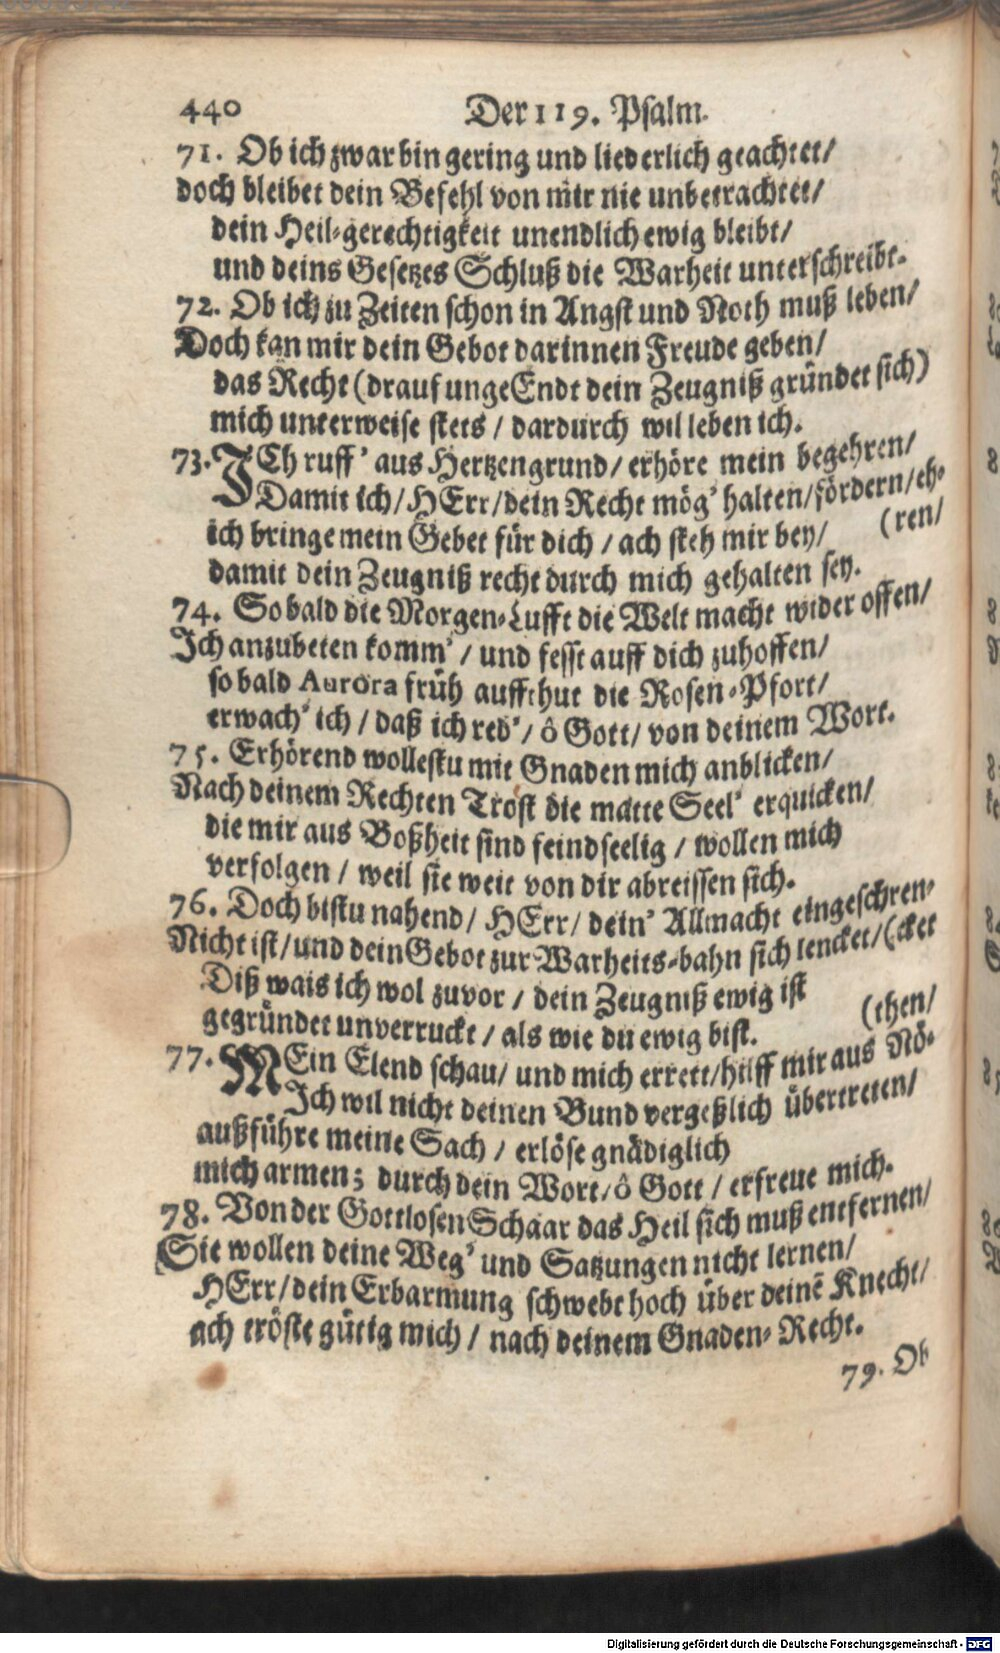 440 Der 119. Psalm.
71. Ob ich zwar bin gering und liederlich geachtet/
doch bleibet dein Befehl von mir nie unbetrachtet/
dein Heil-gerechtigkeit unendlich ewig bleibt/
und deins Gesetzes Schluß die Warheit unterschreibt.
72. Ob ich zu Zeiten schon in Angst und Noth muß leben/
Doch kan mir dein Gebot darinnen Freude geben/
das Recht (drauf ungeEndt dein Zeugniß gründet sich)
mich unterweise stets / dardurch wil leben ich.
73. ICh ruff' aus Hertzengrund/ erhöre mein begehren/
Damit ich/ HErr/ dein Recht mög' halten/ fördern/ eh-
(ren/
ich bringe mein Gebet für dich / ach steh mir bey/
damit dein Zeugniß recht durch mich gehalten sey.
74. So bald die Morgen-Lufft die Welt macht wider offen/
Ich anzubeten komm' / und fesst auff dich zuhoffen/
so bald Aurora früh auffthut die Rosen-Pfort/
erwach' ich / daß ich red' / ô Gott/ von deinem Wort.
75. Erhörend wollestu mit Gnaden mich anblicken/
Nach deinem Rechten Trost die matte Seel' erquicken/
die mir aus Boßheit sind feindseelig / wollen mich
verfolgen / weil sie weit von dir abreissen sich.
76. Doch bistu nahend/ HErr/ dein' Allmacht eingeschren-
Nicht ist/ und dein Gebot zur Warheits-bahn sich lencket/ (cket
Diß wais ich wol zuvor / dein Zeugniß ewig ist
gegründet unverruckt / als wie du ewig bist. (then/
77. MEin Elend schau/ und mich errett/ hilff mir aus Nö-
Ich wil nicht deinen Bund vergeßlich übertreten/
außführe meine Sach / erlöse gnädiglich
mich armen; durch dein Wort/ ô Gott / erfreue mich.
78. Von der Gottlosen Schaar das Heil sich muß entfernen/
Sie wollen deine Weg' und Satzungen nicht lernen/
HErr/ dein Erbarmung schwebt hoch über deinẽ Knecht/
ach tröste gütig mich / nach deinem Gnaden-Recht.
79. Ob
Digitalisierung gefördert durch die Deutsche Forschungsgemeinschaft - DFG